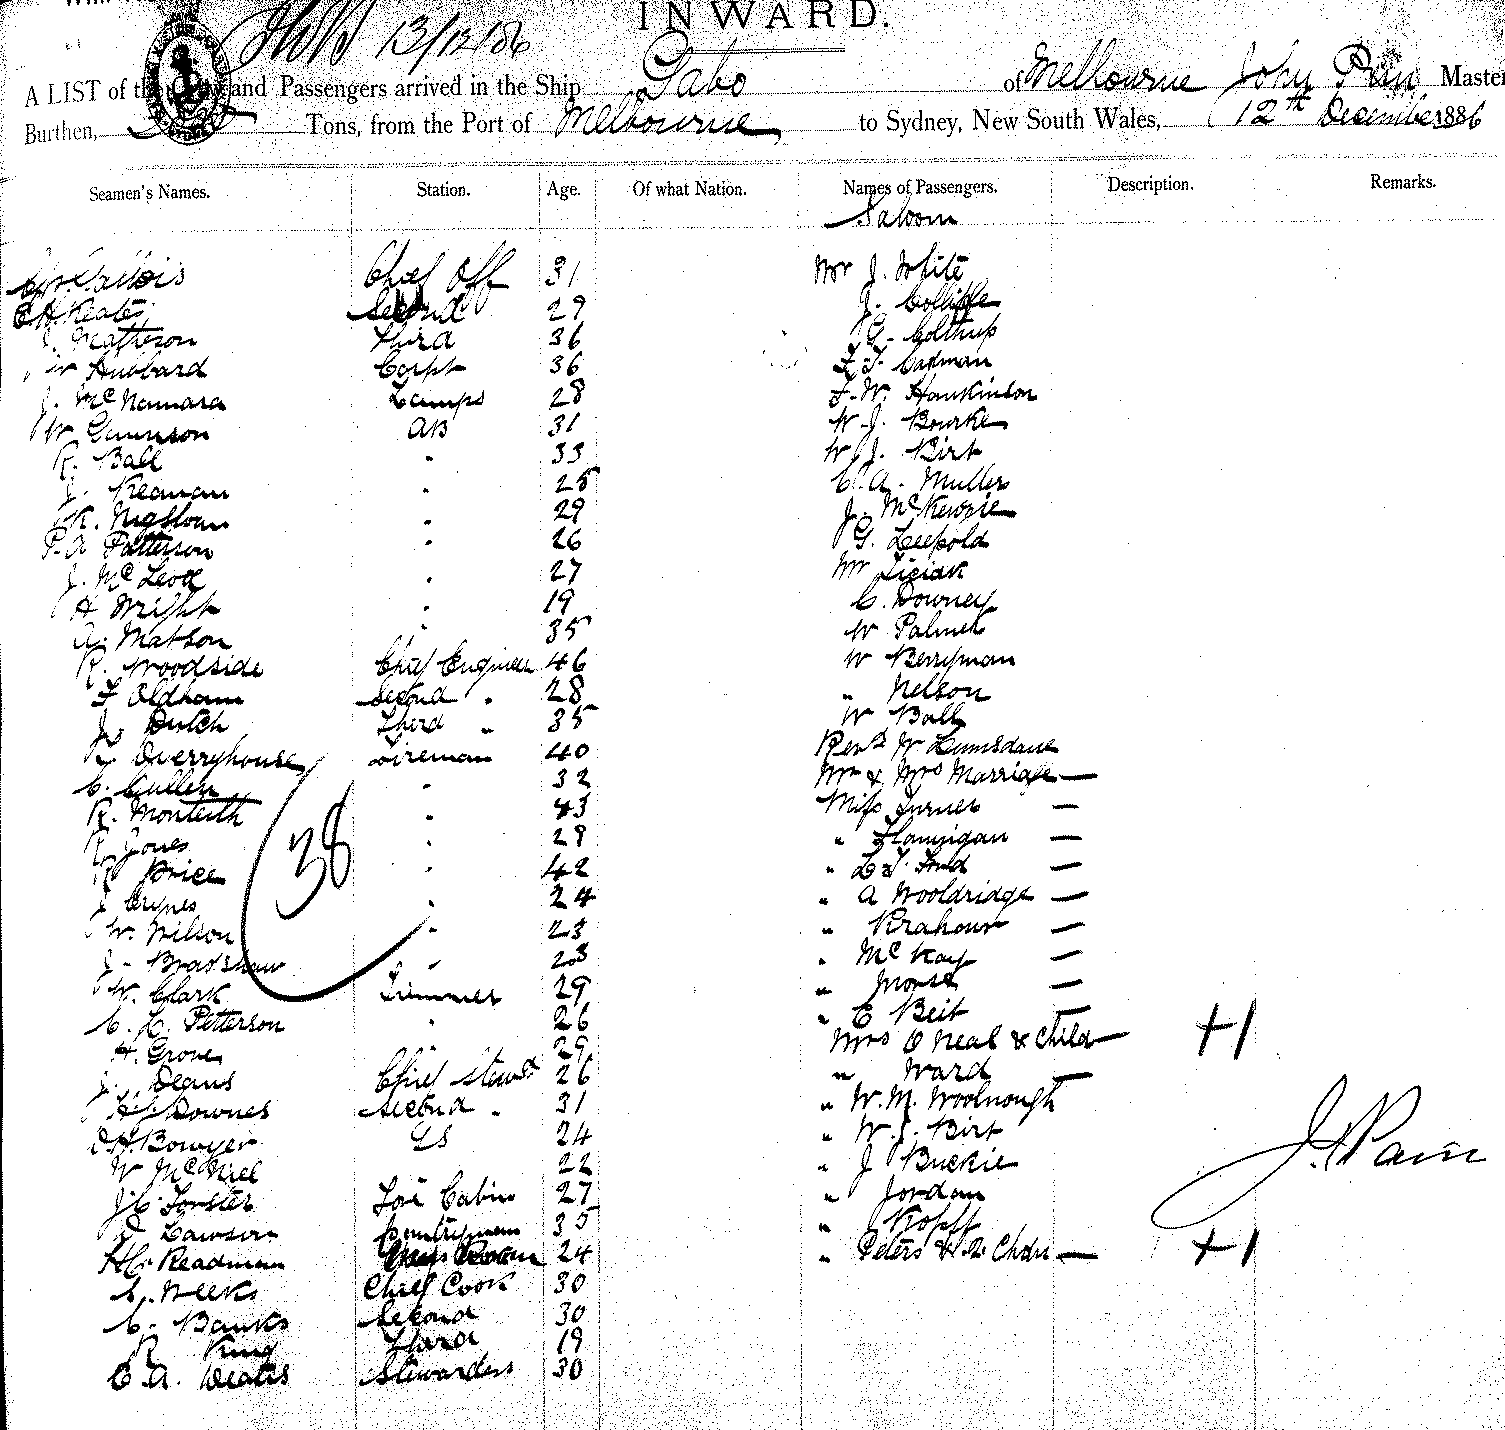 INWARD.
13/12/86
A LIST of the Crew and Passengers arrived in the Ship Gabo of Melbourne John Pain Master
Burthen, Tons, from the Port of Melbourne to Sydney, New South Wales, 12th December 1886
Seamen's Names. Station. Age. Of what Nation. Names of Passengers. Description. Remarks.
Saloon
Chief Off 31 Mr J. White
Keates Second 29 J.
J. Matheson Third 36 G. Colthup
W Hubbard Carpt 36 Cadman
J. McNamara Lamps 28 F. W. Hankinson
W Gunnson AB 31 W J. Bourke
R. Ball " 33 W J. Birt
J. " 25 C. A. Muller
K. " 29 J. McKenzie
P. A Patterson " 26 G. Leepold
J. McLeod " 27 Mr
H Wright " 19 C. Downey
A. Matson " 35 W Palmer
R. Woodside Chief Engineer 46 W Berryman
F Oldham Second " 28 " Nelson
J. Dutch Third " 35 W Ball
Fireman 40 Revd W Lumsdane
C. Cullen " 32 Mr & Mrs Marriage —
R. Monteith " 43 Miss Turner —
R Jones " 29 " Flannigan —
R Price " 42 " —
J Crynes " 24 " A Wooldridge —
W. Wilson " 23 " —
J. Bradshaw " 23 " McKay —
W. Clark Trimmer 29 " Morse —
C. C. Petterson " 26 " C Beit —
H. Grove " 29 Mrs O Neal & Child — +1
J. Deans Chief Stewd 26 " Ward —
H J Downes Second " 31 " W. M. Woolnough
H. Bowyer GS 24 " W. J. Birt
W McNiel 22 " J Buckie
J. C. Forster Fore Cabin 27 " Jordan
Lawson Pantryman 35 " Kopff
H C. Readman 24 " Peters & 2 Chdn — +1
C. Weeks Chief Cook 30
C. Banks Second 30
R King Third 19
C. A. Stewardess 30
38
J. Pain